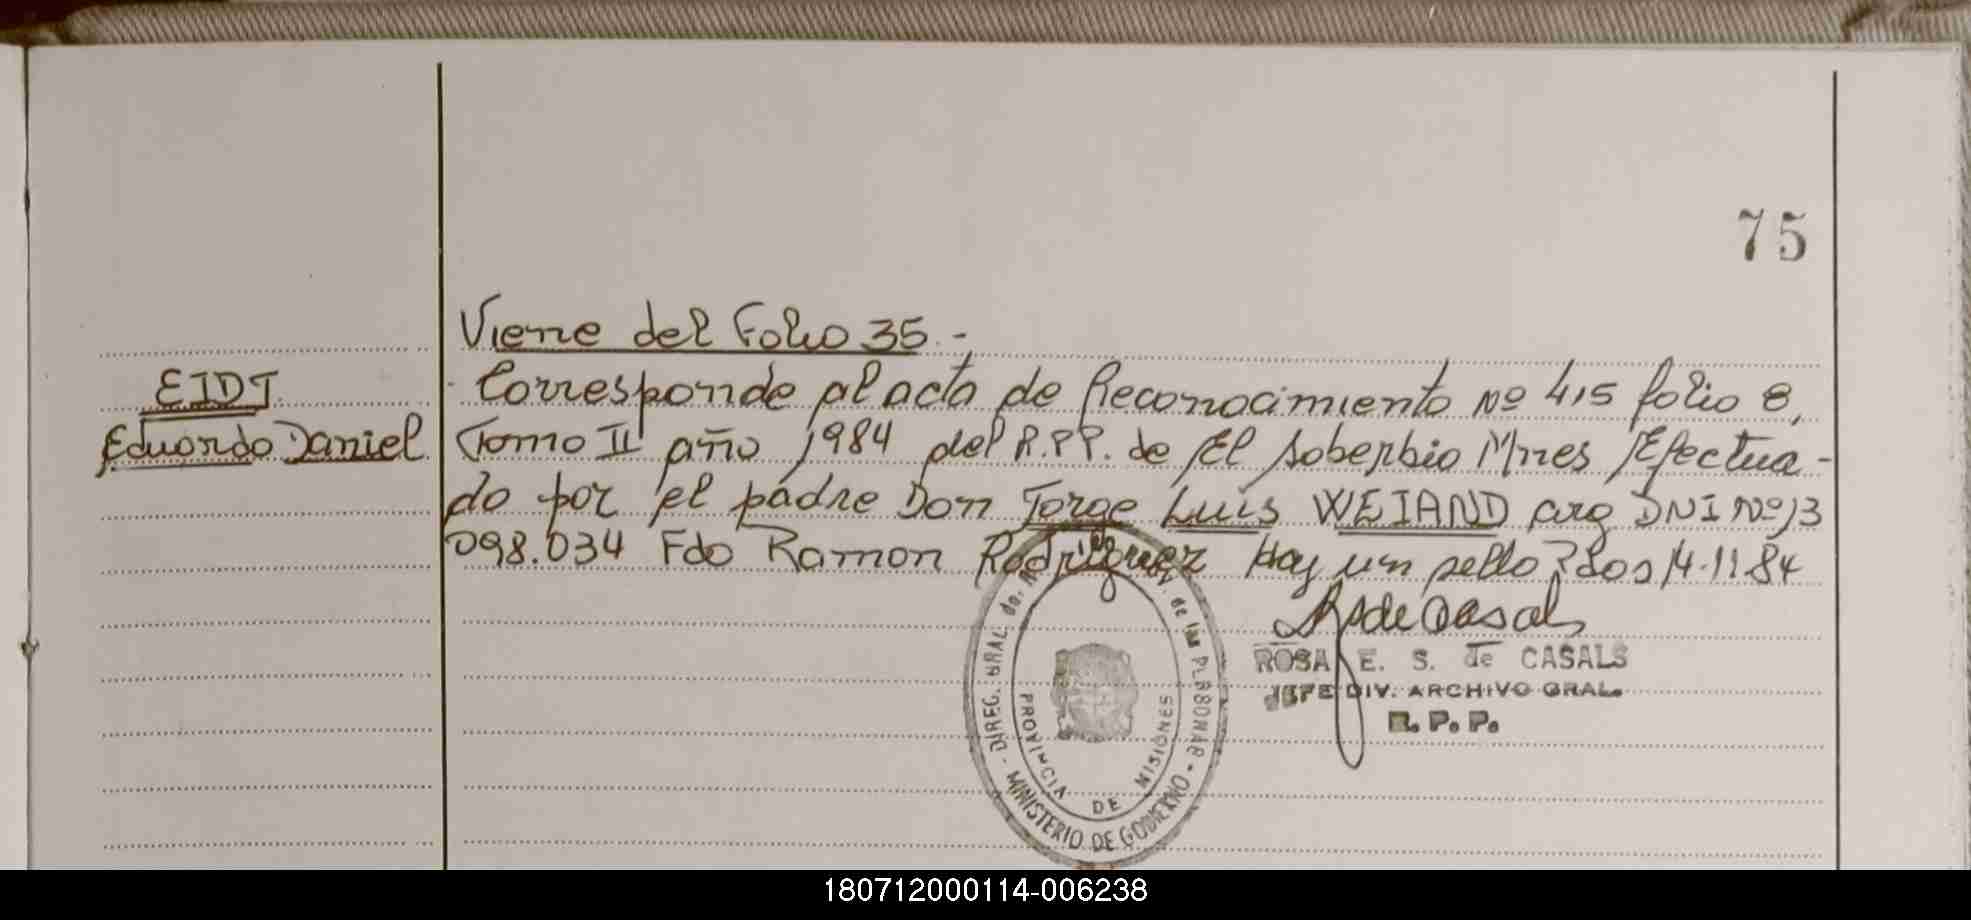 75
Viene del Folio 35.-
EIDT
Corresponde al acta de Reconocimiento Nº 415 folio 8,
Eduardo Daniel
Tomo II año 1984 del R.P.P. de El Soberbio Mnes Efectua-
do por el padre Don Jorge Luis WEIAND arg DNI Nº 13
098.034 Fdo Ramon Rodriguez Hay un sello Pdos 14.11.84
ROSA E. S. de CASALS
JEFE DIV. ARCHIVO GRAL.
R. P. P.
DIREC. GRAL. de las PERSONAS
PROVINCIA DE MISIONES
MINISTERIO DE GOBIERNO
180712000114-006238